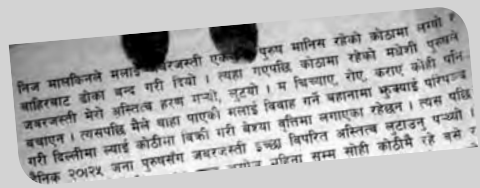 निज मालकिनले मलाई जबरजस्ती पुरुष मानिस रहेको कोठामा लगी
बाहिरबाट ढोका बन्द गरी दियो । त्यहा गएपछि कोठामा रहेको मधेशी पुरुषले
जबरजस्ती मेरो अस्तित्व हरण गर्‍यो, लुटयो । म चिच्याए, रोए, कराए कोही पनि
बचाएन । त्यसपछि मैले थाहा पाएको मलाई विवाह गर्ने बहानामा झुक्याई
गरी दिल्लीमा ल्याई कोठीमा बिक्री गरी बेश्या वृत्तिमा लगाएका रहेछन । त्यस पछि
दैनिक २०।२५ जना पुरुषसँग जबरजस्ती इच्छा विपरित अस्तित्व लुटाउनु पर्‍यो ।
महिना सम्म सोही कोठीमै रहे